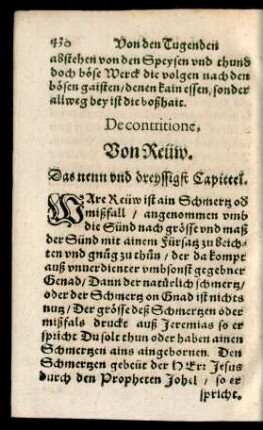 430 Von den Tugenden
abstehen von den Speysen vnd thund
doch böse Werck die volgen nach den
bösen gaisten / denen kain essen / sonder
allweg bey ist die boßhait.
De contritione,
Von Reüw.
Das nenn vnd dreyssigst Capittel.
WAre Reüw ist ain Schmertz od
mißfall / angenommen vmb
die Sünd nach grösse vnd maß
der Sünd mit ainem Fürsatz zu Beich-
ten vnd gnůg zu thůn / der da kompt
auß vnuerdienter vmbsonst gegebner
Genad / Dann der natürlich schmertz /
oder der Schmertz on Gnad ist nichts
nutz / Der grösse deß Schmertzen oder
mißfals druckt auß Jeremias so er
spricht Du solt thun oder haben ainen
Schmertzen ains aingebornen. Den
Schmertzen gebeüt der HErr Jesus
durch den Propheten Johel / so er
spricht.